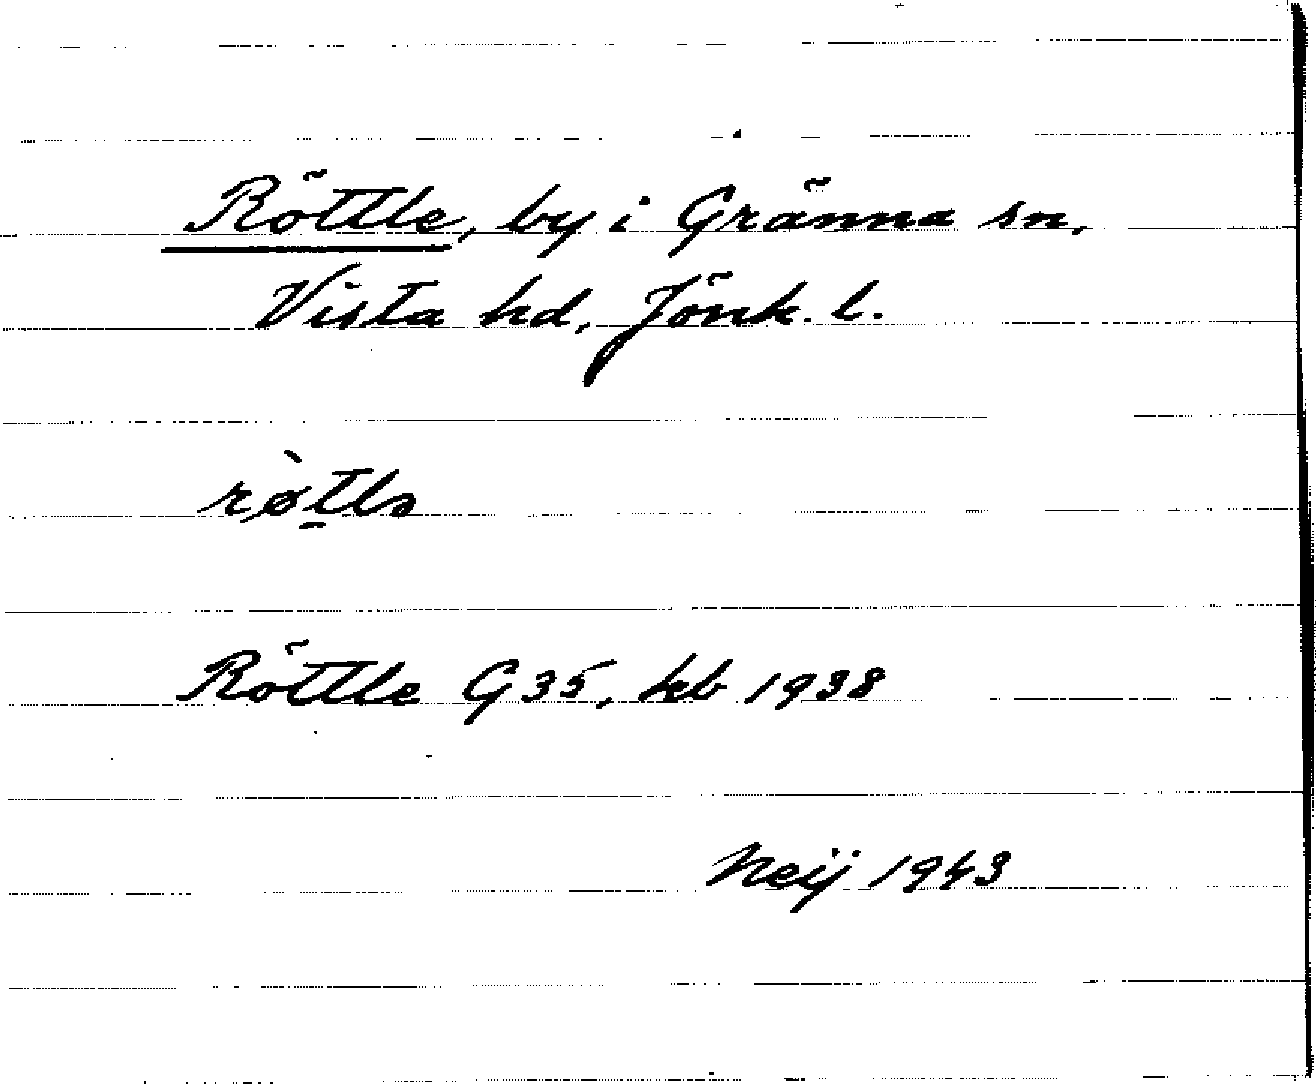 Röttle, by i Gränna sn,
Vista hd, Jönk. l.
rø̀t̠lə
Röttle G35, kb 1938
Neij 1943